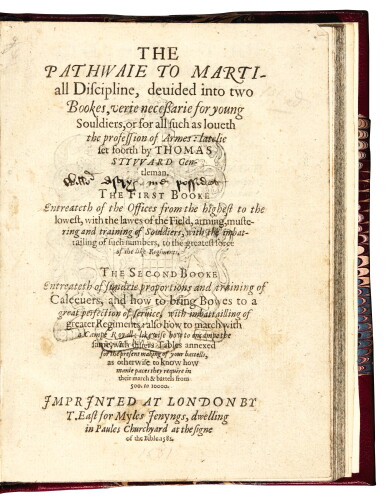 THE
PATHWAIE TO MARTI-
all Discipline, deuided into two
Bookes, verie necessarie for young
Souldiers, or for all such as loueth
the profession of Armes: latelie
set foorth by THOMAS
STYWARD Gen-
tleman.
THE FIRST BOOKE
Entreateth of the Offices from the highest to the
lowest, with the lawes of the Field, arming, muste-
ring and training of Souldiers, with the imbat-
tailing of such numbers, to the greatest force
of the like Regiments.
THE SECOND BOOKE
Entreateth of sundrie proportions and training of
Caleeuers, and how to bring Bowes to a
great perfection of seruice, with imbattailling of
greater Regiments: also how to march with
a Campe Royall: likewise how to encampe the
same, with diuers Tables annexed
for the present making of your battells,
as otherwise to know how
manie paces they require in
their march & battels from
500. to 10000.
IMPRINTED AT LONDON BY
T. East for Myles Jenyngs, dwelling
in Paules Churchyard at the signe
of the Bible. 1582.